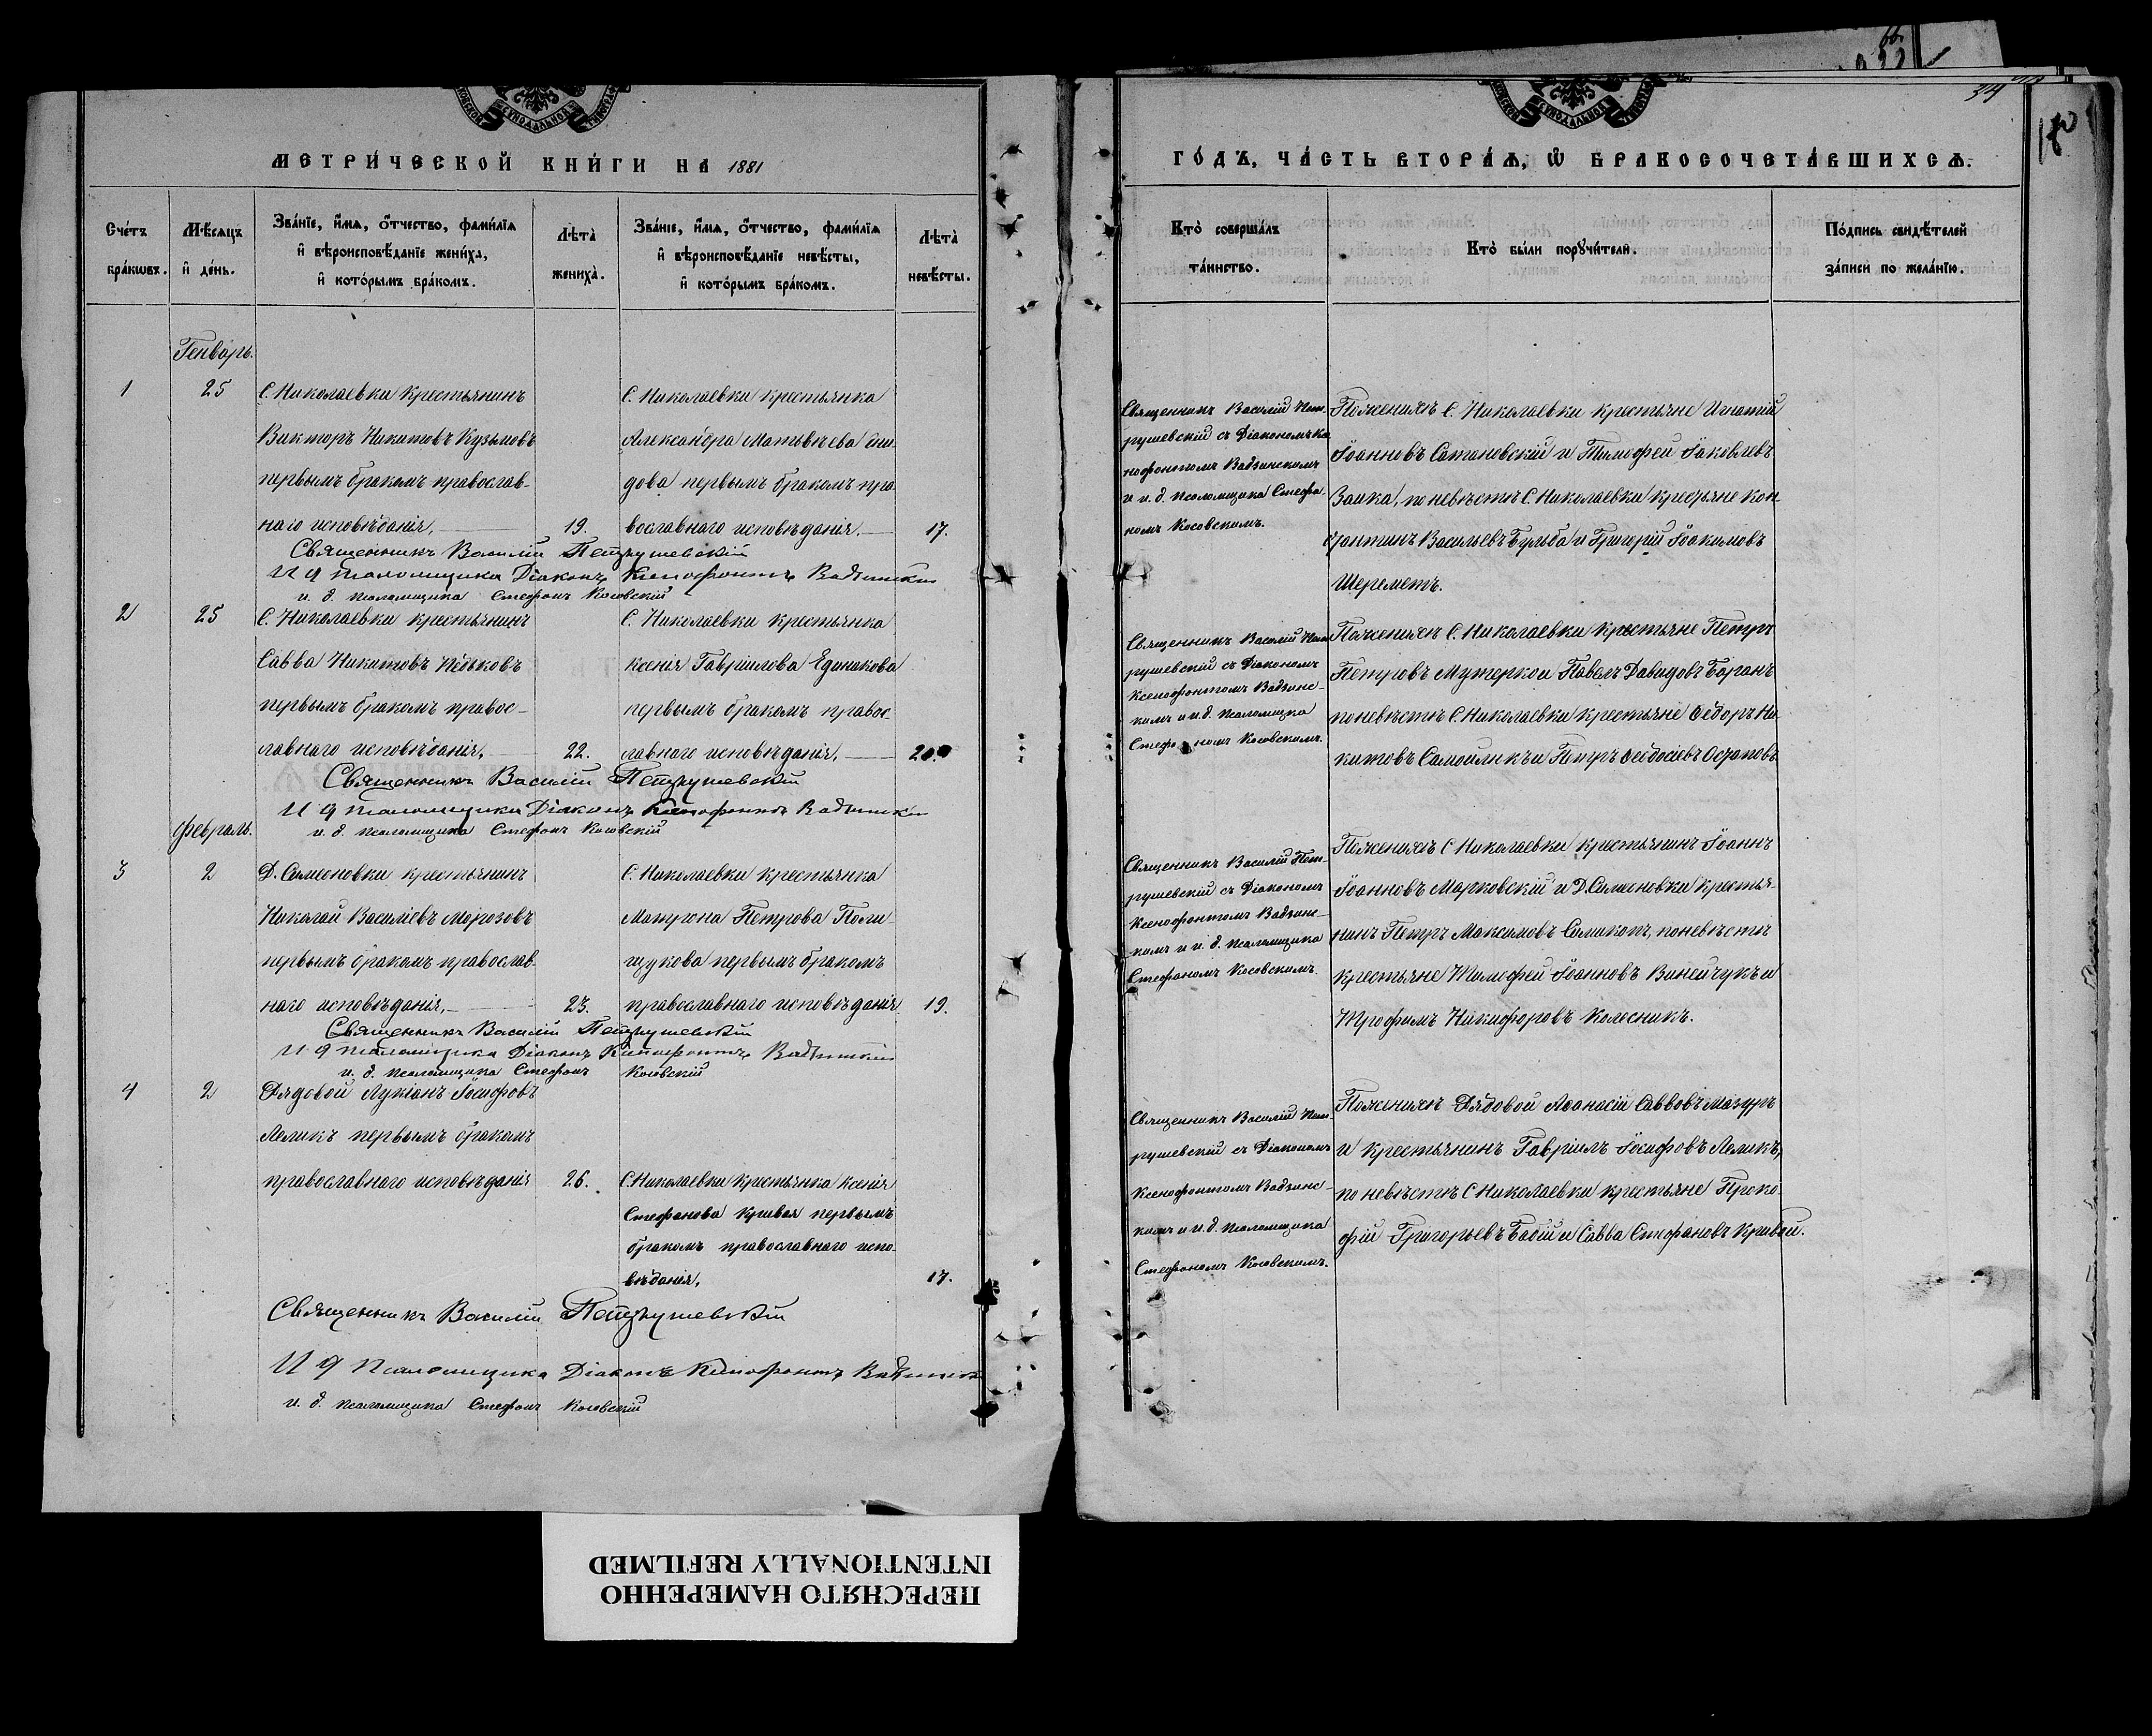 МЕТРИ́ЧЕСКОЙ КНИ́ГИ НА 1881
Сче́тъ бра́кѡвъ.
Мѣ́сяцъ и҆ де́нь.
Зва́нїе, и҆́мѧ, ѻ҆́тчество, фами́лїѧ
и҆ вѣроисповѣ́данїе жениха̀,
и҆ кото́рымъ бра́комъ.
Лѣта̀ жениха̀.
Зва́нїе, и҆́мѧ, ѻ҆́тчество, фами́лїѧ
и҆ вѣроисповѣ́данїе невѣ́сты,
и҆ кото́рымъ бра́комъ.
Лѣта̀ невѣ́сты.
Генварь.
1 25 С. Николаевки крестьянинъ
Викторъ Никитовъ Кузьмовъ
первымъ бракомъ православ-
наго исповѣданія, 19.
С. Николаевки крестьянка
Александра Матвѣева
дова первымъ бракомъ пра-
вославнаго исповѣданія. 17.
Священникъ Василій Петрушевскій
И д псаломщика Діаконъ Ксенофонтъ
и. д. псаломщика Стефанъ Косовскій
2 25 С. Николаевки крестьянинъ
Савва Никитовъ
первымъ бракомъ правос-
лавнаго исповѣданія, 22.
С. Николаевки крестьянка
Ксенія Гавріилова Единакова
первымъ бракомъ правос-
лавнаго исповѣданія, 20.
Священникъ Василій Петрушевскій
И д псаломщика Діаконъ Ксенофонтъ
и. д. псаломщика Стефанъ Косовскій
Февраль.
3 2 Д. Симоновки крестьянинъ
Николай Василіевъ Морозовъ
первымъ бракомъ православ-
наго исповѣданія, 23.
С. Николаевки крестьянка
Матрона Петрова Поли-
щукова первымъ бракомъ
православнаго исповѣданія 19.
Священникъ Василій Петрушевскій
И д псаломщика Діаконъ Ксенофонтъ
и. д. псаломщика Стефанъ Косовскій
4 2 Рядовой Лукіанъ Іосифовъ
Леликъ первымъ бракомъ
православнаго исповѣданія 26.
С. Николаевки крестьянка Ксенія
Стефанова Кривая первымъ
бракомъ православнаго испо-
вѣданія, 17.
Священникъ Василій Петрушевскій
И д Псаломщика Діаконъ Ксенофонтъ
и. д. псаломщика Стефанъ Косовскій
34
180
ГО́ДЪ, ЧА́СТЬ ВТОРА́Ѧ, Ѽ БРАКОСОЧЕТА́ВШИХСѦ.
Кто̀ соверша́лъ
та́инство.
Кто̀ бы́ли порꙋчи́тели.
По́дпись свидѣ́телей
за́писи по жела́нїю.
Священникъ Василій Пет-
рушевскій съ Діакономъ Ксе-
нофонтомъ
и и. д. псаломщика Стефа-
номъ Косовскимъ.
По женихѣ С. Николаевки крестьяне Игнатій
Іоанновъ Сатановскій и Тимофей Іаковлевъ
Заика, по невѣстѣ С. Николаевки крестьяне Кон
стантинъ Васильевъ Бульба и Григорій Іоакимовъ
Шереметъ.
Священникъ Василій Пет
рушевскій съ Діакономъ
Ксенофонтомъ
и и. д. псаломщика
Стефаномъ Косовскимъ.
По женихѣ С. Николаевки крестьяне Петръ
Петровъ и Павелъ Давидовъ Баранъ
по невѣстѣ С. Николаевки крестьяне Ѳедоръ Ни-
китовъ и Петръ Ѳеодосіевъ
Священникъ Василій Пет-
рушевскій съ Діакономъ
Ксенофонтомъ
и и. д. псаломщика
Стефаномъ Косовскимъ.
По женихѣ С Николаевки крестьянинъ Іоаннъ
Іоанновъ Марковскій и Д. Симоновки крестья-
нинъ Петръ Максимовъ по невѣстѣ
крестьяне Тимофей Іоанновъ Винейчукъ и
Трофимъ Никифоровъ Колесникъ.
Священникъ Василій Пет
рушевскій съ Діакономъ
Ксенофонтомъ
и и. д. псаломщика
Стефаномъ Косовскимъ.
По женихѣ Рядовой Аѳанасій Саввовъ Мазуръ
и крестьянинъ Гавріилъ Іосифовъ Леликъ,
по невѣстѣ С Николаевки крестьяне Проко-
фій Григорьевъ Бабій и Савва Стефановъ Кривой.
ПЕРЕСНЯТО НАМЕРЕННО
INTENTIONALLY REFILMED